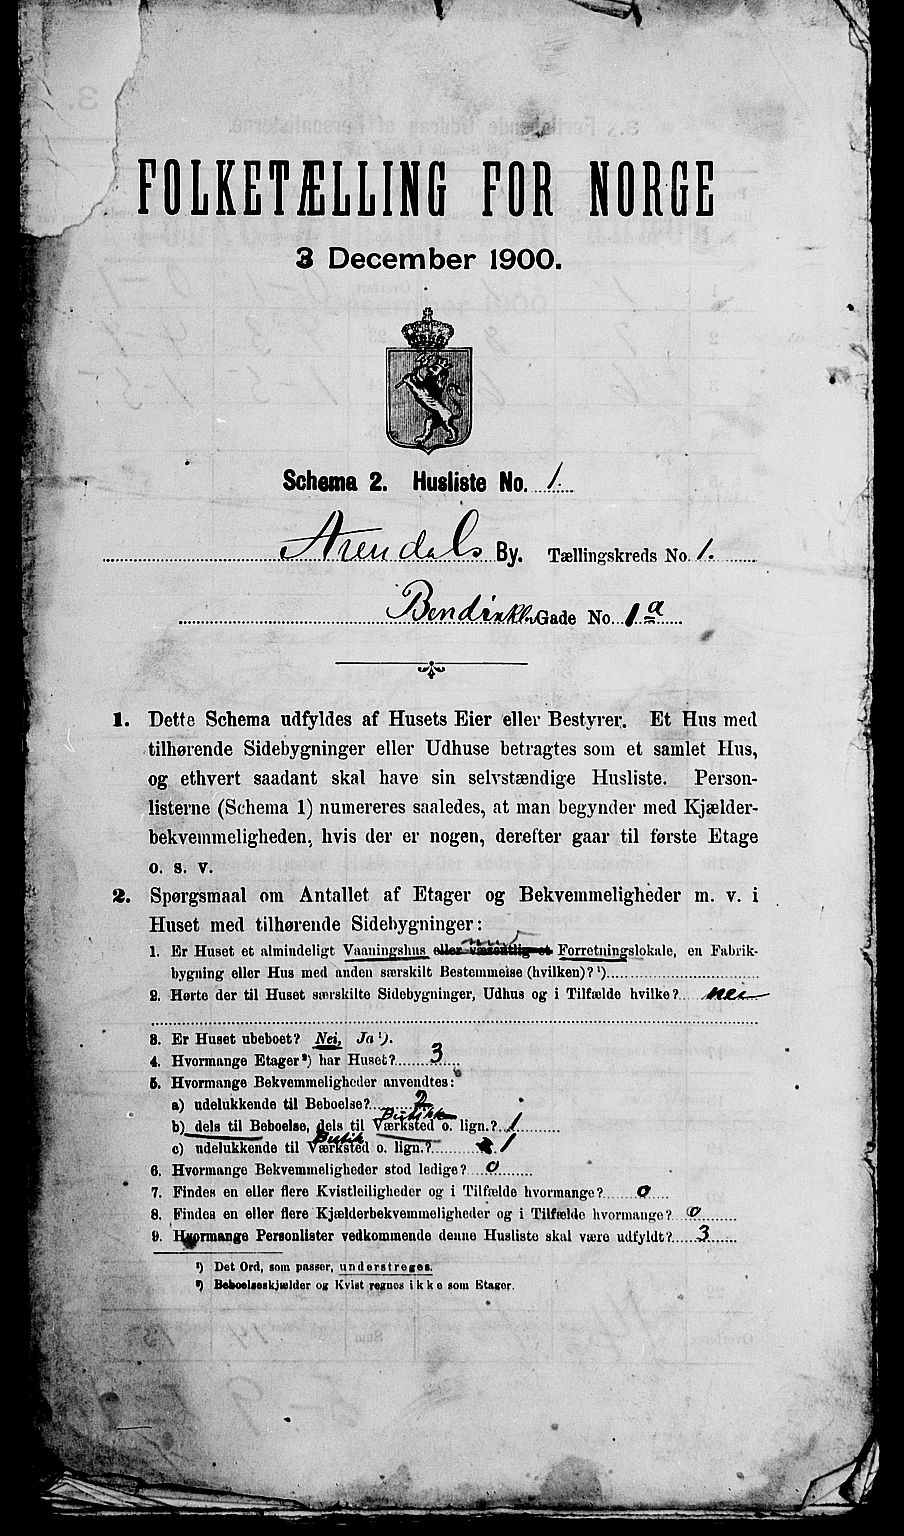 FOLKETÆLLING FOR NORGE
3 December 1900.
Schema 2. Husliste No. 1.
Arendals By. Tællingskreds No. 1.
Gade No. 1a
1. Dette Schema udfyldes af Husets Eier eller Bestyrer. Et Hus med
tilhørende Sidebygninger eller Udhuse betragtes som et samlet Hus,
og ethvert saadant skal have sin selvstændige Husliste. Person-
listerne (Schema 1) numereres saaledes, at man begynder med Kjælder-
bekvemmeligheden, hvis der er nogen, derefter gaar til første Etage
o. s. v.
2. Spørgsmaal om Antallet af Etager og Bekvemmeligheder m. v. i
Huset med tilhørende Sidebygninger:
med
1. Er Huset et almindeligt Vaaningshus eller væsentlig et Forretningslokale, en Fabrik-
bygning eller Hus med anden særskilt Bestemmelse (hvilken)? ¹)
2. Hørte der til Huset særskilte Sidebygninger, Udhus og i Tilfælde hvilke? nei
3. Er Huset ubeboet? Nei, Ja ¹).
4. Hvormange Etager ²) har Huset? 3
5. Hvormange Bekvemmeligheder anvendtes:
a) udelukkende til Beboelse? 2
Butikk
b) dels til Beboelse, dels til Værksted o. lign.? 1
Butik
c) udelukkende til Værksted o. lign.? 1
6. Hvormange Bekvemmeligheder stod ledige? 0
7. Findes en eller flere Kvistleiligheder og i Tilfælde hvormange? 0
8. Findes en eller flere Kjælderbekvemmeligheder og i Tilfælde hvormange? 0
9. Hvormange Personlister vedkommende denne Husliste skal være udfyldt? 3
¹) Det Ord, som passer, understreges.
²) Beboelseskjælder og Kvist regnes ikke som Etager.